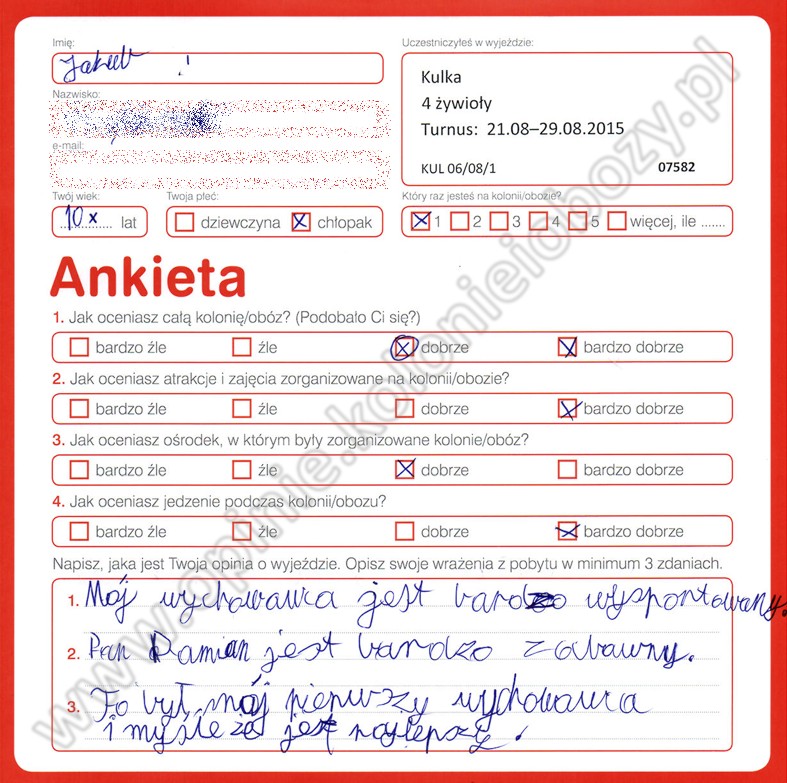 Imię:
Uczestniczyłeś w wyjeździe:
Jakub !
Kulka
4 żywioły
Turnus: 21.08–29.08.2015
KUL 06/08/1 07582
Nazwisko:
e-mail:
Twój wiek:
Twoja płeć:
Który raz jesteś na kolonii/obozie?
10 x lat
dziewczyna x chłopak
x 1 2 3 4 5 więcej, ile .......
Ankieta
1. Jak oceniasz całą kolonię/obóz? (Podobało Ci się?)
bardzo źle źle x dobrze x bardzo dobrze
2. Jak oceniasz atrakcje i zajęcia zorganizowane na kolonii/obozie?
bardzo źle źle dobrze x bardzo dobrze
3. Jak oceniasz ośrodek, w którym były zorganizowane kolonie/obóz?
bardzo źle źle x dobrze bardzo dobrze
4. Jak oceniasz jedzenie podczas kolonii/obozu?
bardzo źle źle dobrze x bardzo dobrze
Napisz, jaka jest Twoja opinia o wyjeździe. Opisz swoje wrażenia z pobytu w minimum 3 zdaniach.
1. Mój wychowawca jest bardzo wysportowany.
2. Pan Damian jest bardzo zabawny.
3. To był mój pierwszy wychowawca
i myśle że jest najlepszy.
www.opinie.kolonieiobozy.pl